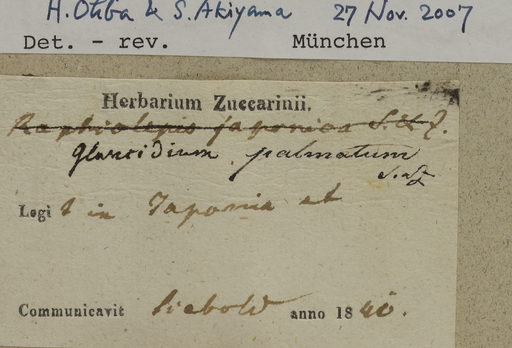 H. Ohba & S. Akiyama 27 Nov. 2007
Det. - rev. München
Herbarium Zuccarinii.
Raphiolepis japonica S. & Z.
Glaucidium palmatum
S. & Z.
Legi t in Japonia et
Communicavit Siebold anno 1840.